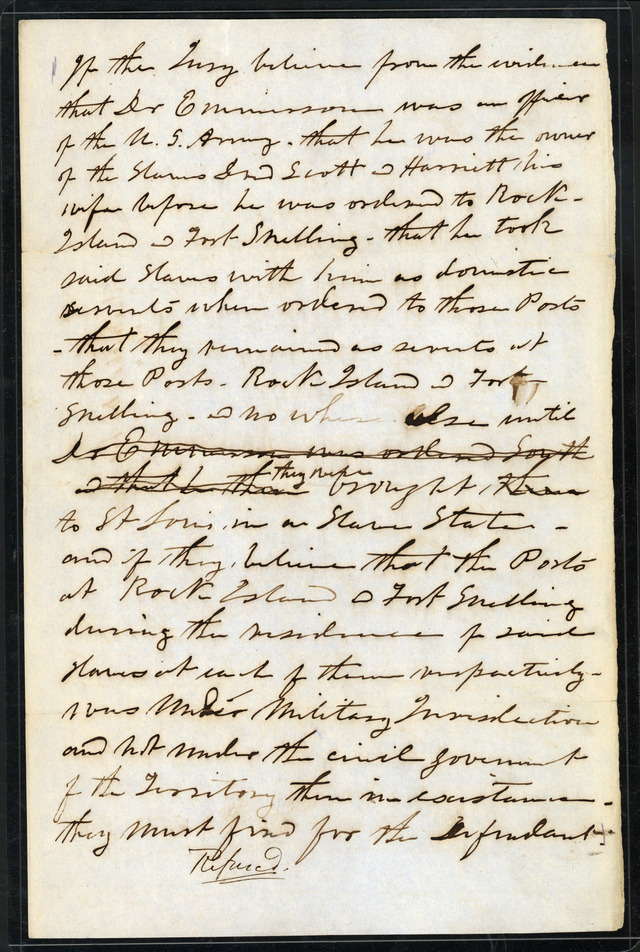 If the Jury believe from the evidence
that Dr Emmerson was an officer
of the U. S. Army - that he was the owner
of the Slaves Dred Scott & Harriett his
wife before he was ordered to Rock-
Island & Fort Snelling - that he took
said Slaves with him as domestic
servents when ordered to those Posts
- that they remained as servents at
those Posts - Rock Island & Fort
Snelling - & no where else until
Dr Emmerson was ordered South
& that he then they were brought them
to St Louis in a Slave State -
and if they believe that the Posts
at Rock Island & Fort Snelling
during the residence of said
slaves at each of them respectively -
was under Military Jurisdiction
and not under the civil goverment
of the Territory then in existance -
they must find for the Defendant -
Refused.